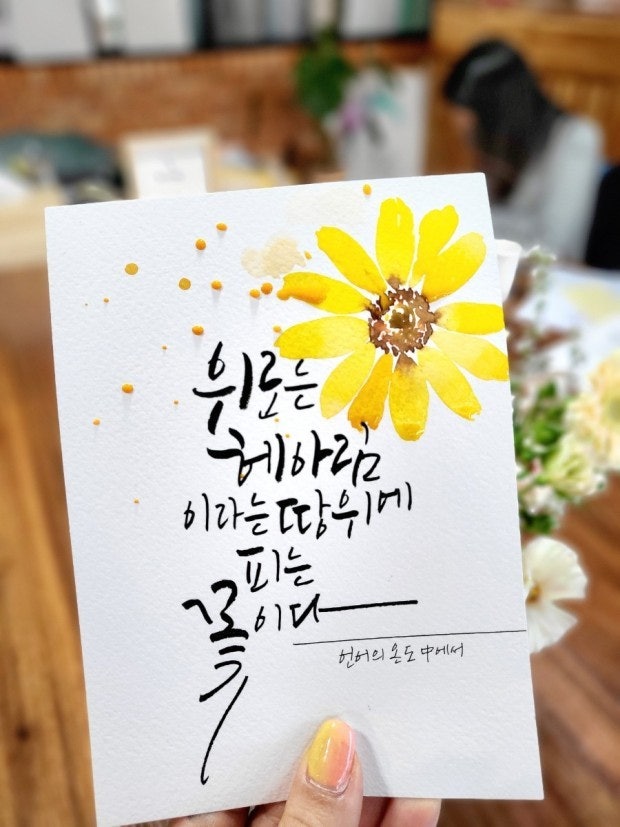 위로는
헤아림
이라는 땅위에
피는
꽃이다
언어의 온도 中에서